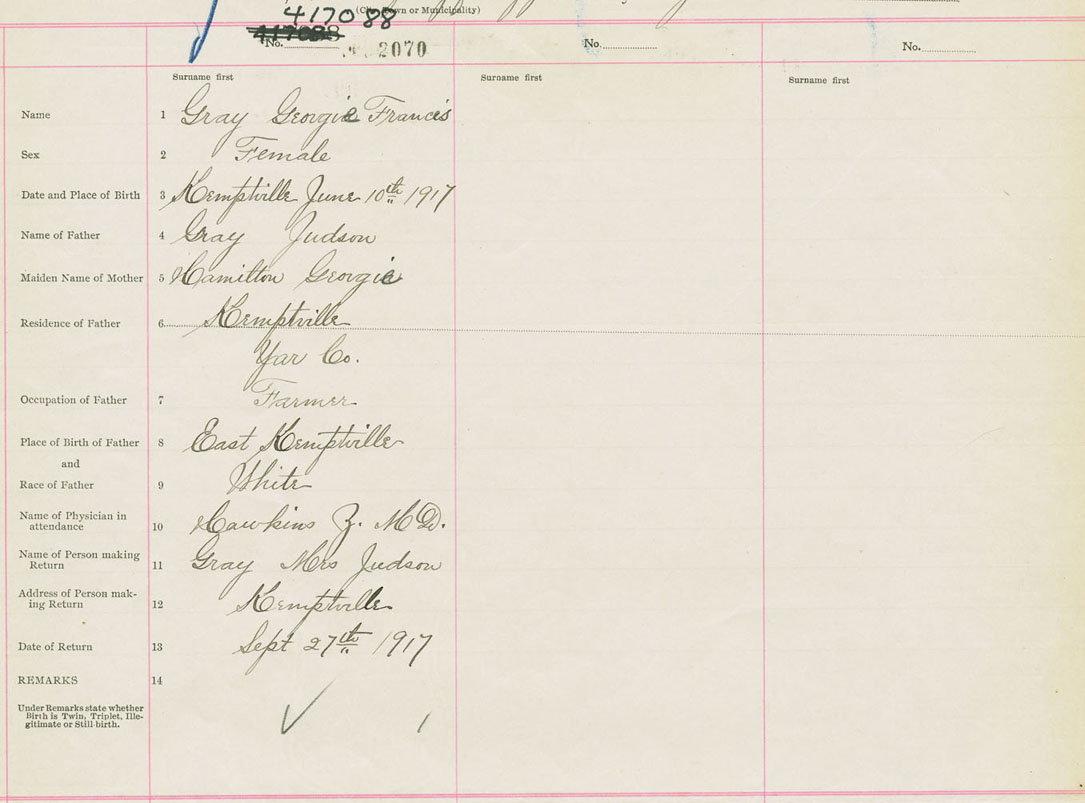 417088
(City, Town or Municipality)
417088
No. 2070
No.
No.
Surname first
Surname first
Surname first
Name 1 Gray Georgie Francis
Sex 2 Female
Date and Place of Birth 3 Kemptville June 10th 1917
Name of Father 4 Gray Judson
Maiden Name of Mother 5 Hamilton Georgie
Residence of Father 6 Kemptville
Yar Co.
Occupation of Father 7 Farmer
Place of Birth of Father 8 East Kemptville
and
Race of Father 9 White
Name of Physician in
attendance 10 Hawkins Z. M.D.
Name of Person making
Return 11 Gray Mrs Judson
Address of Person mak-
ing Return 12 Kemptville
Date of Return 13 Sept 27th 1917
REMARKS 14
Under Remarks state whether
Birth is Twin, Triplet, Ille-
gitimate or Still-birth.